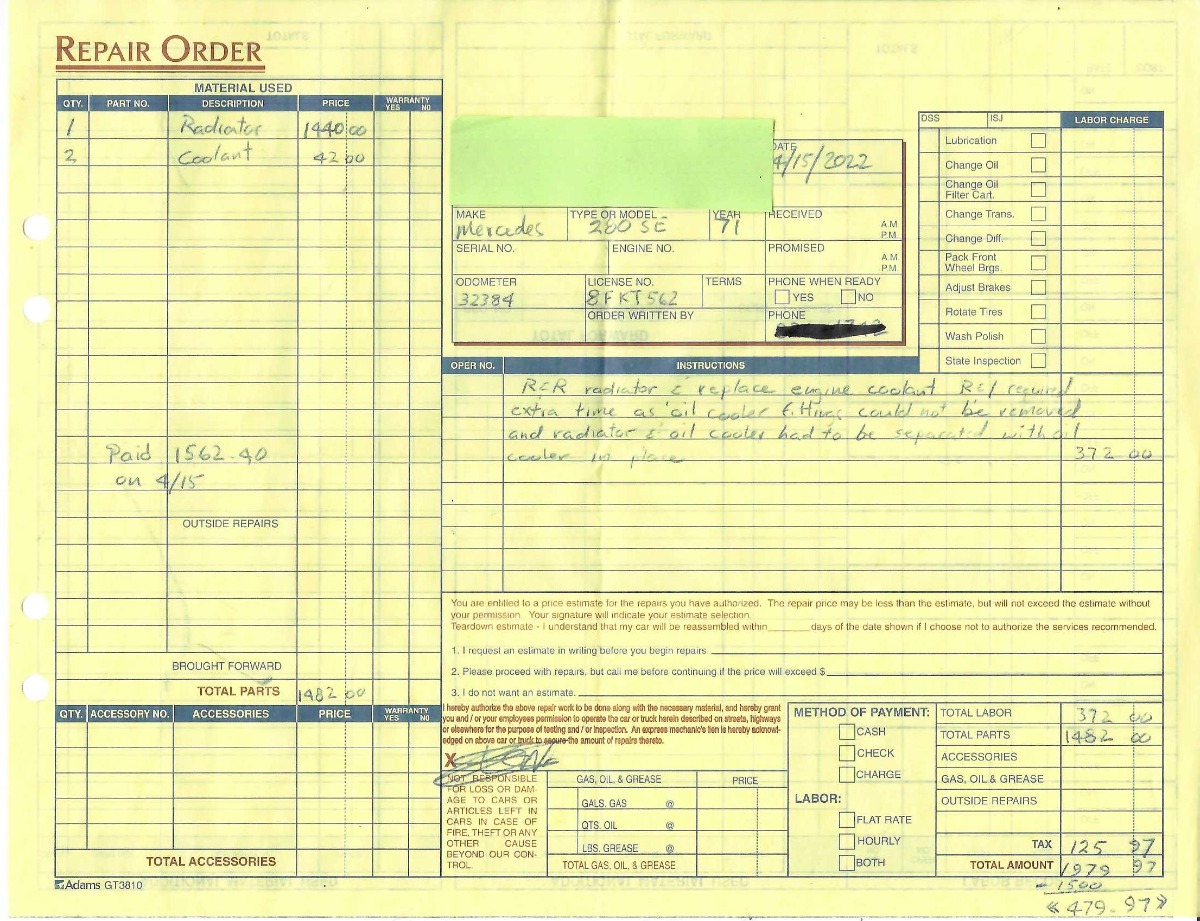 REPAIR ORDER
MATERIAL USED
QTY. PART NO. DESCRIPTION PRICE WARRANTY YES NO
1 Radiator 1440 00
2 Coolant 42 00
Paid 1562.40
on 4/15
OUTSIDE REPAIRS
BROUGHT FORWARD
TOTAL PARTS 1482 00
QTY. ACCESSORY NO. ACCESSORIES PRICE WARRANTY YES NO
TOTAL ACCESSORIES
Adams GT3810
DATE
4/15/2022
MAKE TYPE OR MODEL YEAR RECEIVED
Mercedes 280 SE 71 A.M.
P.M.
SERIAL NO. ENGINE NO. PROMISED
A.M.
P.M.
ODOMETER LICENSE NO. TERMS PHONE WHEN READY
32384 8FKT562 YES NO
ORDER WRITTEN BY PHONE
DSS ISJ LABOR CHARGE
Lubrication
Change Oil
Change Oil
Filter Cart.
Change Trans.
Change Diff.
Pack Front
Wheel Brgs.
Adjust Brakes
Rotate Tires
Wash Polish
State Inspection
OPER NO. INSTRUCTIONS
R&R radiator & replace engine coolant required
extra time as oil cooler fittings could not be removed
and radiator & oil cooler had to be separated with oil
cooler in place 372 00
You are entitled to a price estimate for the repairs you have authorized. The repair price may be less than the estimate, but will not exceed the estimate without
your permission. Your signature will indicate your estimate selection.
Teardown estimate - I understand that my car will be reassembled within_______days of the date shown if I choose not to authorize the services recommended.
1. I request an estimate in writing before you begin repairs.
2. Please proceed with repairs, but call me before continuing if the price will exceed $
3. I do not want an estimate.
I hereby authorize the above repair work to be done along with the necessary material, and hereby grant
you and / or your employees permission to operate the car or truck herein described on streets, highways
or elsewhere for the purpose of testing and / or inspection. An express mechanic's lien is hereby acknowl-
edged on above car or truck to secure the amount of repairs thereto.
X
NOT RESPONSIBLE
FOR LOSS OR DAM-
AGE TO CARS OR
ARTICLES LEFT IN
CARS IN CASE OF
FIRE, THEFT OR ANY
OTHER CAUSE
BEYOND OUR CON-
TROL.
GAS, OIL & GREASE PRICE
GALS. GAS @
QTS. OIL @
LBS. GREASE @
TOTAL GAS, OIL, & GREASE
METHOD OF PAYMENT:
CASH
CHECK
CHARGE
LABOR:
FLAT RATE
HOURLY
BOTH
TOTAL LABOR 372 00
TOTAL PARTS 1482 00
ACCESSORIES
GAS, OIL & GREASE
OUTSIDE REPAIRS
TAX 125 97
TOTAL AMOUNT 1979 97
- 1500
«479.97»